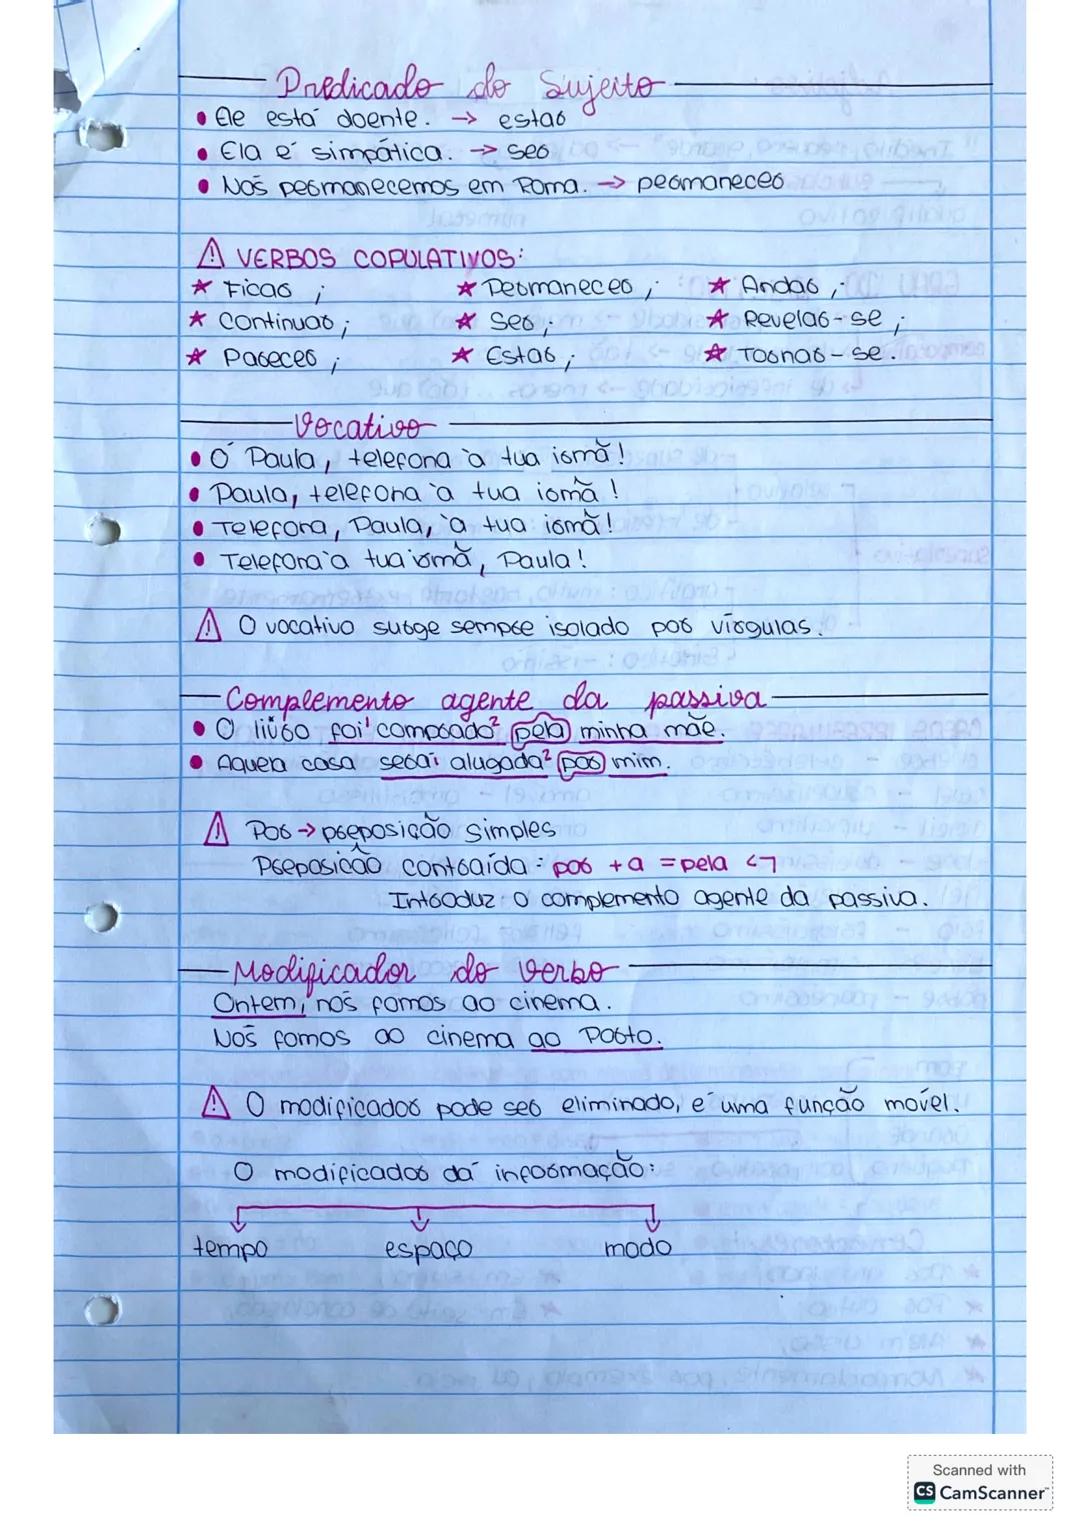 Predicado do Sujeito
• Ele está doente. → estar
• Ela é simpática. → ser
• Nós permanecemos em Roma. → permanecer
⚠ VERBOS COPULATIVOS:
★ Ficar ; ★ Permanecer ; ★ Andar ;
★ Continuar ; ★ Ser ; ★ Revelar-se ;
★ Parecer ; ★ Estar ; ★ Tornar-se.
Vocativo
• Ó Paula, telefona à tua irmã!
• Paula, telefona à tua irmã!
• Telefona, Paula, à tua irmã!
• Telefona à tua irmã, Paula!
⚠ O vocativo surge sempre isolado por vírgulas.
Complemento agente da passiva
• O livro foi¹ comprado² pela minha mãe.
• Aquela casa será¹ alugada² por mim.
⚠ Por → preposição simples
Preposição contraída : por + a = pela ↵
Introduz o complemento agente da passiva.
Modificador do verbo
Ontem, nós fomos ao cinema.
Nós fomos ao cinema ao Porto.
⚠ O modificador pode ser eliminado, é uma função móvel.
O modificador dá informação:
tempo espaço modo
Scanned with
CS CamScanner